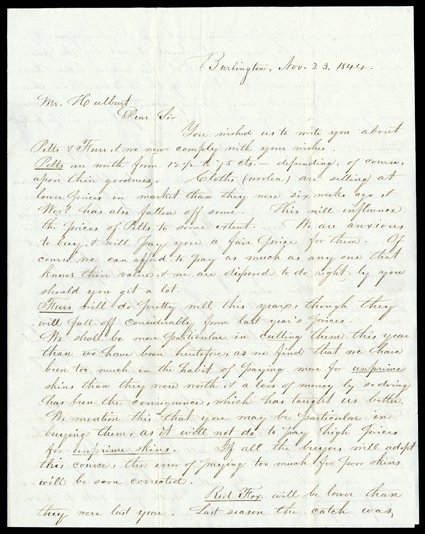 Burlington, Nov. 23, 1844.
Mr. Hulburt
Dear Sir
You wished us to write you about
Pelts & Furs, & we now comply with your wishes.
Pelts are worth from 12½ to 75 cts. — depending, of course,
upon their goodness. Cloths (woolen) are selling at
lower prices in market than they were six weeks ago, &
Wool has also fallen off some. This will influence
the prices of Pelts to some extent. We are anxious
to buy, & will pay you a fair price for them. Of
course we can afford to pay as much as any one that
knows their value, & we are disposed to do right by you
should you get a lot.
Furs will do pretty well this year, though they
will fall off considerably from last year's prices.
We shall be more particular in culling them this year
than we have been heretofore, as we find that we have
been too much in the habit of paying more for unprime
skins than they were worth, & a loss of money by so doing
has been the consequence, which has taught us better.
We mention this that you may be particular in
buying them, as it will not do to pay high prices
for unprime skins. If all the buyers will adopt
this course, the error of paying too much for poor skins
will be soon corrected.
Red Fox will be lower than
they were last year. Last season the catch was,